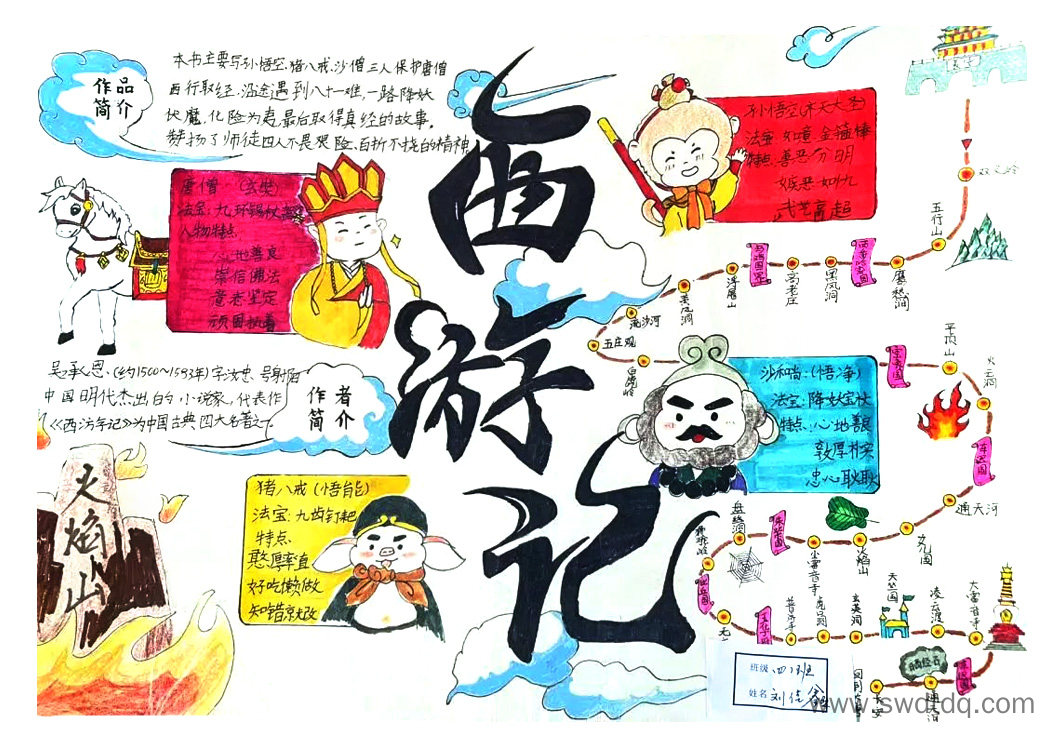 作品
简介
本书主要写孙悟空、猪八戒、沙僧三人保护唐僧
西行取经,沿途遇到八十一难,一路降妖
伏魔,化险为夷,最后取得真经的故事。
赞扬了师徒四人不畏艰险、百折不挠的精神
西游记
唐僧 (玄奘)
法宝:九环锡杖
人物特点
心地善良
崇信佛法
意志坚定
顽固执着
孙悟空(齐天大圣)
法宝:如意金箍棒
特点:善恶分明
嫉恶如仇
武艺高超
吴承恩,(约1500~1583年)字汝忠,号射阳
中国明代杰出的小说家,代表作
《西游记》为中国古典四大名著之一
作者
简介
沙和尚:(悟净)
法宝:降妖宝杖
特点:心地善良
敦厚朴实
忠心耿耿
猪八戒(悟能)
法宝:九齿钉耙
特点:
憨厚率直
好吃懒做
知错就改
火焰山
双叉岭
五行山
鹰愁涧
黑风洞
高老庄
浮屠山
黄风洞
流沙河
五庄观
白虎岭
平顶山
火云洞
通天河
火焰山
小雷音寺
盘丝洞
玄英洞
天竺国
凌云渡
大雷音寺
晒经石
通天河
长安
班级
姓名
www.swdtdq.com